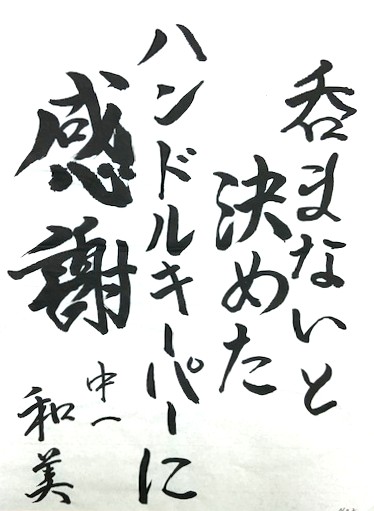 呑まないと
決めた
ハンドルキーパーに
感謝
中一
和美